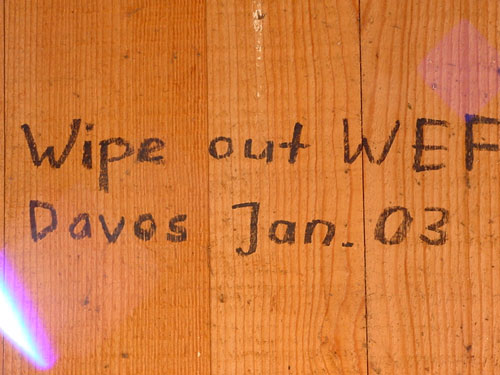 Wipe out WEF
Davos Jan. 03